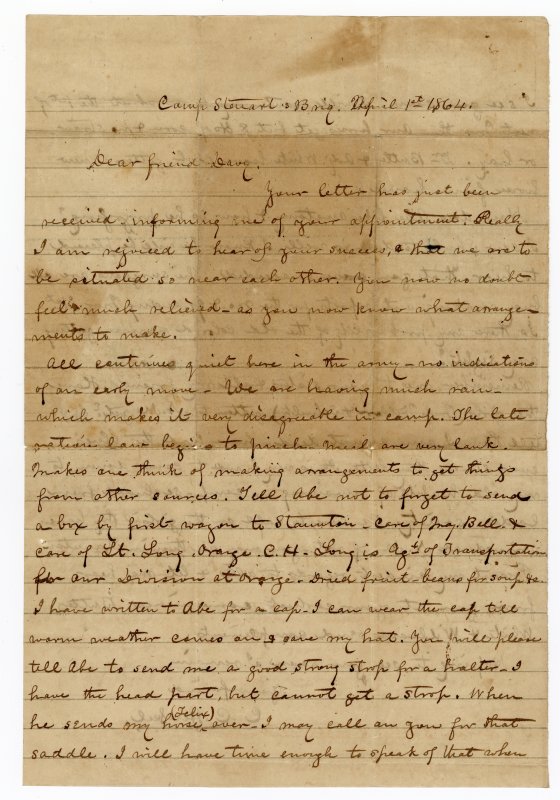 Camp Stewart's Brig. April 1st 1864.
Dear friend Davy.
Your letter has just been
received informing me of your appointment. Really
I am rejoiced to hear of your success, & that we are to
be situated so near each other. You now no doubt
feel much relieved - as you now know what arrange-
ments to make.
All continues quiet here in the army - no indications
of an early move - We are having much rain -
which makes it very disagreeable in camp. The late
ration law begins to pinch. Meal are very lank.
Makes one think of making arrangements to get things
from other sources. Tell Abe not to forget to send
a box by first wagon to Staunton - care of Maj. Bell &
care of Lt. Long, Orange C.H. - Long is Agt of Transportation
for our Division at Orange. Dried fruit - beans for soup &c.
I have written to Abe for a cap - I can wear the cap till
warm weather comes on & save my hat. You will please
tell Abe to send me a good strong strop for a halter - I
have the head part, but cannot get a strop. When
he sends my horse (Felix) over - I may call on you for that
saddle. I will have time enough to speak of that when